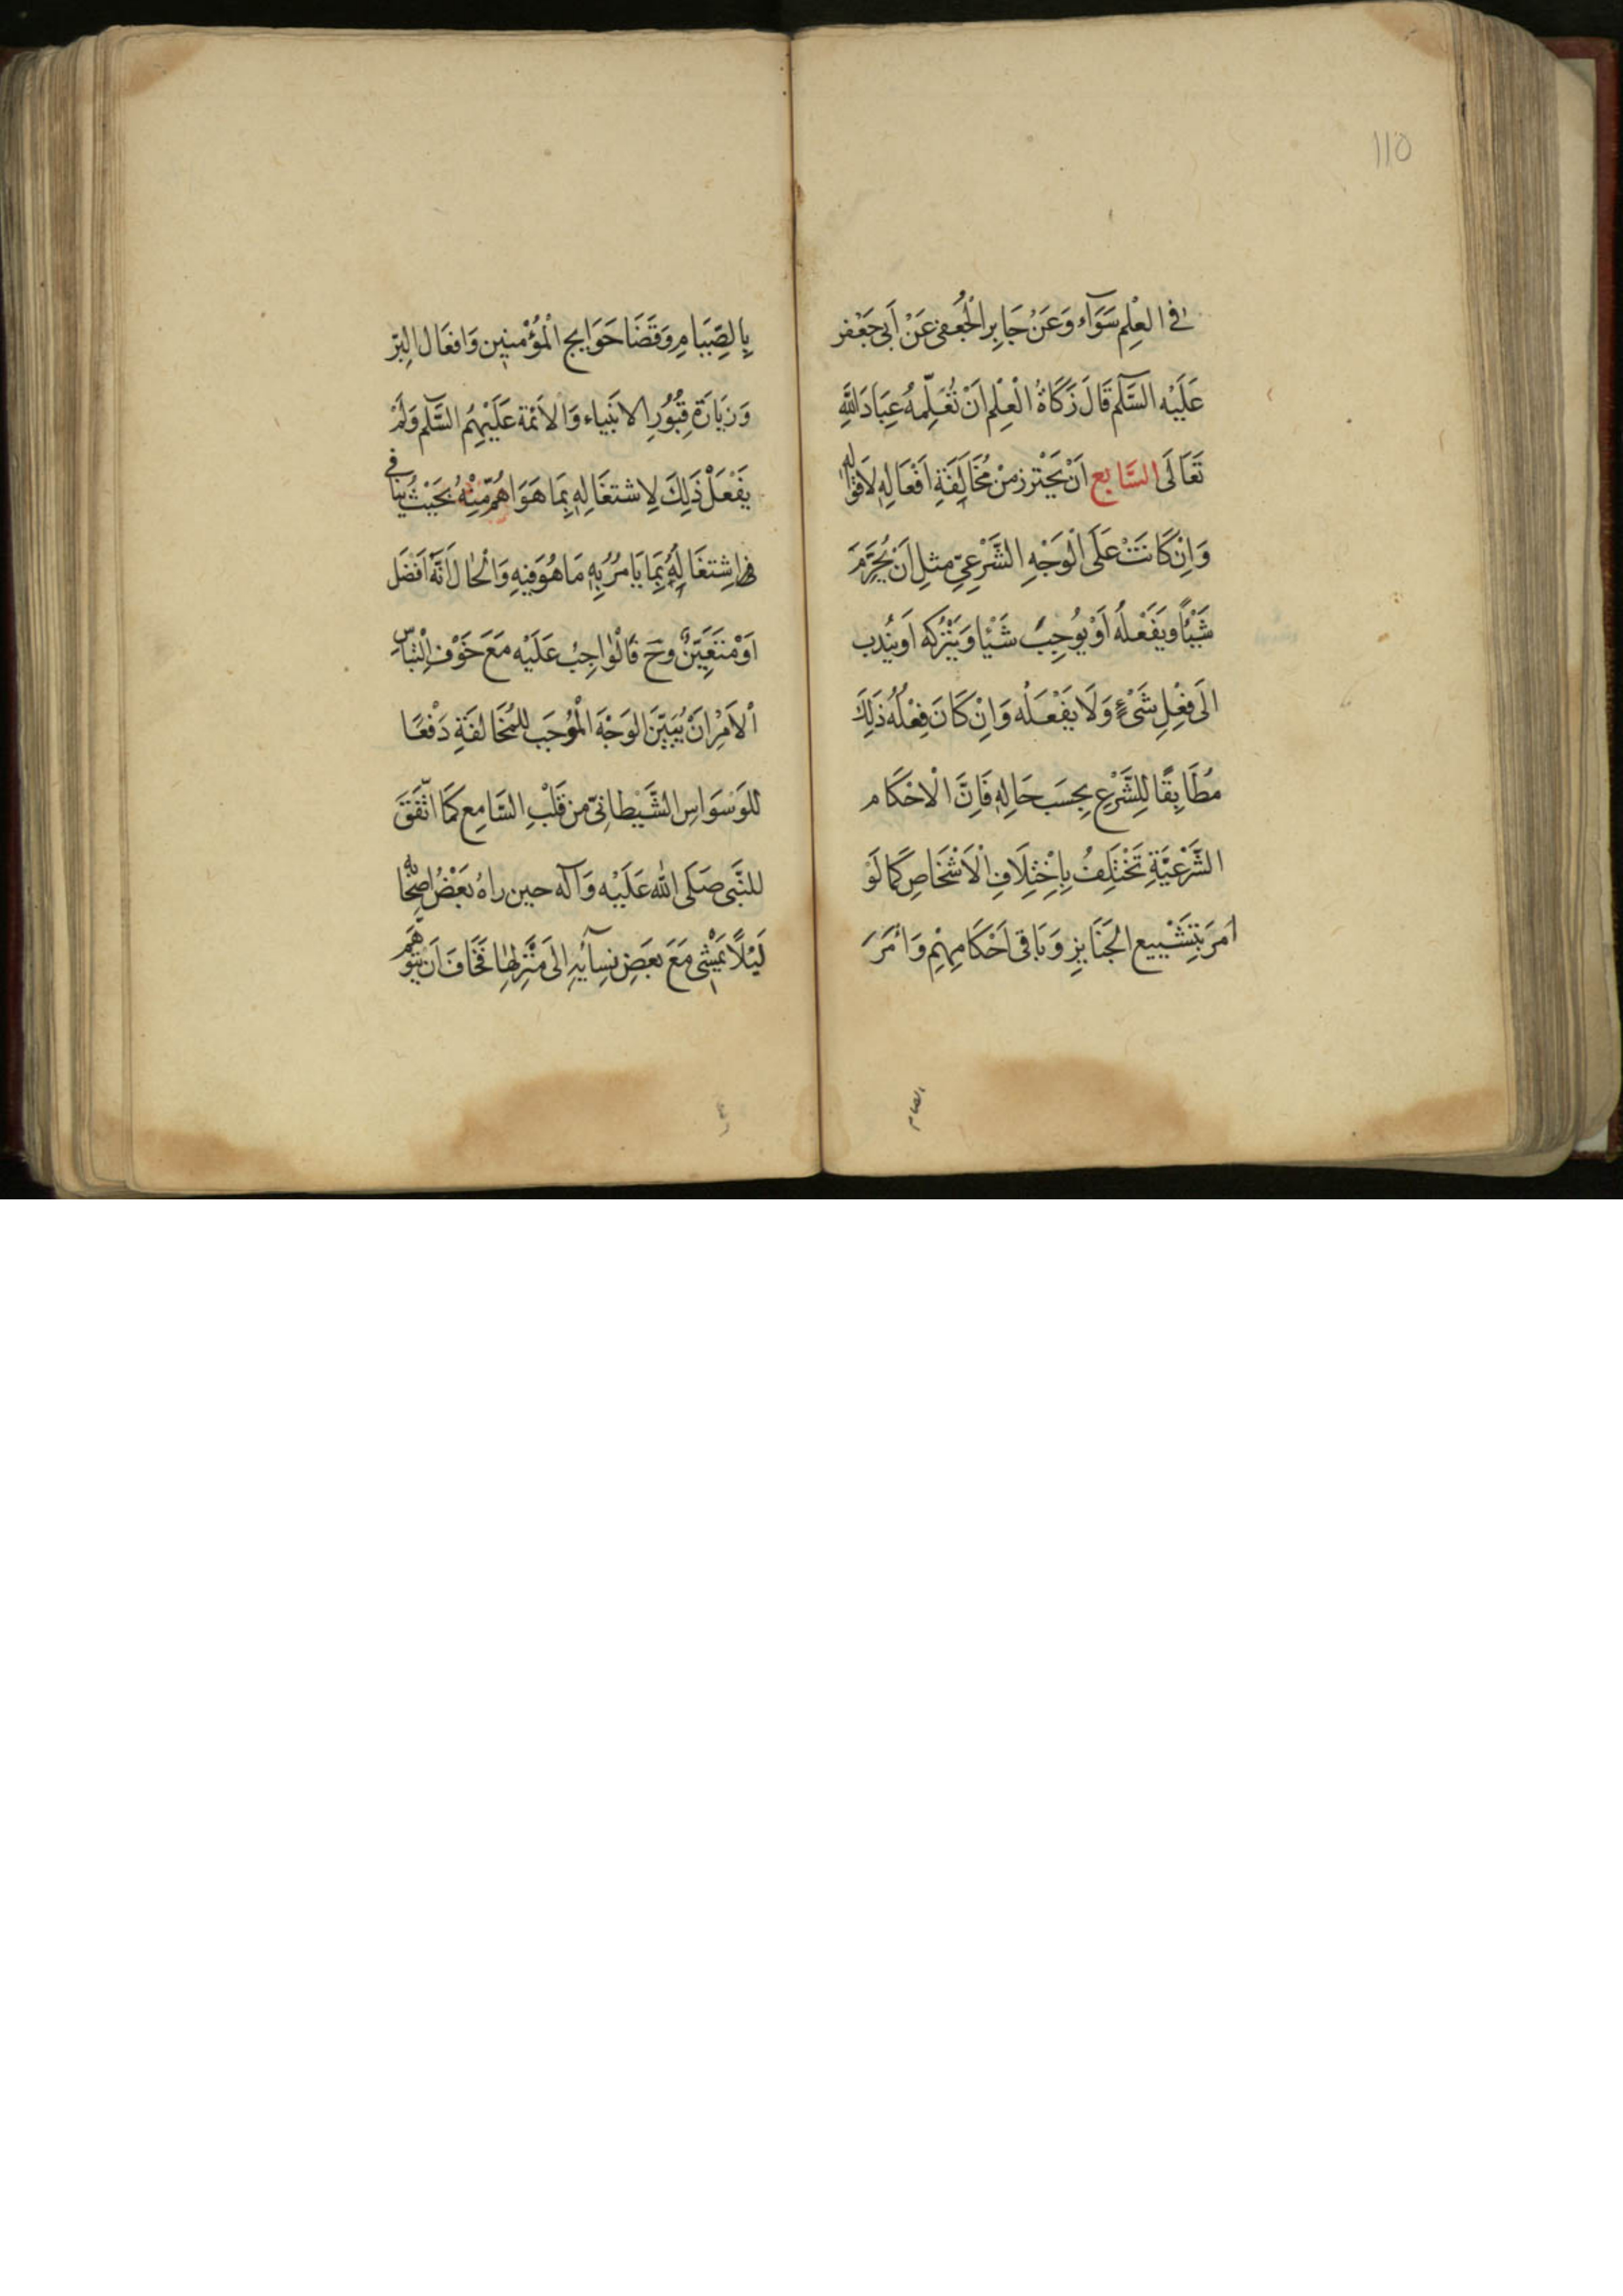 110
فى العِلْمِ سَوَآء وَعَنْ جَابِرِ الْجُعْفى عَنْ اَبى جَعْفر
عَلَيْه السَّلٰم قَالَ زَكَاةُ الْعِلْمِ اَنْ تُعَلِّمَهُ عِبَادَ اللهِ
تَعَالَى السَّابع اَنْ يَحْتَرز مِنْ مُخَالَفَةِ اَفْعَالِهِ لاَقْوالِهِ
وَاِنْ كَانَتْ عَلَى الْوَجْهِ الشَّرْعِىّ مثلِ اَنْ يُحَرِّمَ
شَيْئًا وَيَفْعَلَهُ اَوْ يُوجِبَ شَيْئًا وَيَتْرُكَه اَو يَنْدب
الَى فِعْلِ شَىْءٍ وَلَا يَفْعَلَه وَاِنْ كَانَ فِعْلُهُ ذَلِكَ
مُطَابِقًا لِلشَّرْعِ بِحسَب حَالِهِ فَاِنَّ الْاحْكَام
الشَّرْعِيَّةِ تَخْتَلِفُ بِاخْتِلَافِ الْاَشْخَاصِ كَمَا لَوْ
اَمرَ بِتَشْيِيع الجَنَايزِ وَبَاقى اَحْكَامِهِمْ وَاَمَرَ
الصيام
بِالصِّيَامِ وَقَضَا حَوَايج الْمُؤْمِنِين وَافعَال البِرّ
وَزيَارَة قُبُورِ الانبَياء وَالاَئمّة عَلَيْهِمُ السَّلٰم وَلَمْ
يَفْعَلْ ذَلِكَ لِاشتغَالِهِ بِمَا هَوَ اهَمُّ مِنْهُ بحَيْثُ يُنَافى
اشِتغَالهُ بِمَا يَامُرُ بِهِ مَا هُوَ فيهِ وَالْحَال اَنَّهُ اَفضَل
اَوْ مُتَعَيّنٌ وَحَ فَالْوَاجِبُ عَلَيْه مَعَ خَوْفِ الْتِبَاسِ
اْلاَمْرِ اَنْ يُبَيّنَ الوَجْهَ الْمُوجَب لِلْمُخَالفَةِ دَفْعًا
لِلوَسْوَاسِ الشَّيْطانىّ من قَلْبِ السَّامِع كَمَا اتَّفَقَ
للنَّبى صَلَّى الله عَلَيْه وَآله حين راهُ بَعْضُ اصْحَابِه
لَيْلًا يَمْشى مَعَ بَعَضِ نِسَآئِهِ الى مَنْزِلهَا فَخَافَ اَنْ يَتَوَهَّم